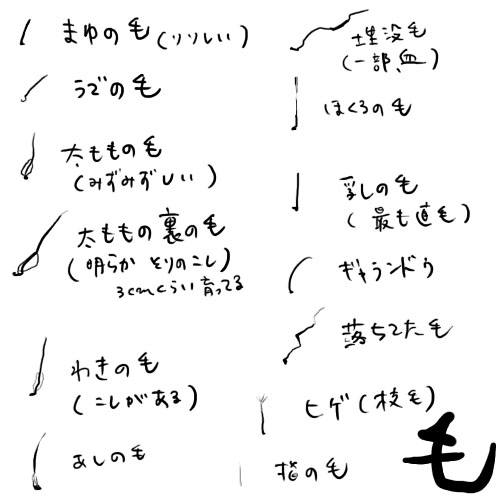 まゆの毛(りりしい)
うでの毛
太ももの毛
(みずみずしい)
太ももの裏の毛
(明らか そりのこし)
3cmくらい育ってる
わきの毛
(こしがある)
あしの毛
埋没毛
(一部、血)
ほくろの毛
乳しの毛
(最も直毛)
ギャランドゥ
落ちてた毛
ヒゲ(枝毛)
指の毛
毛